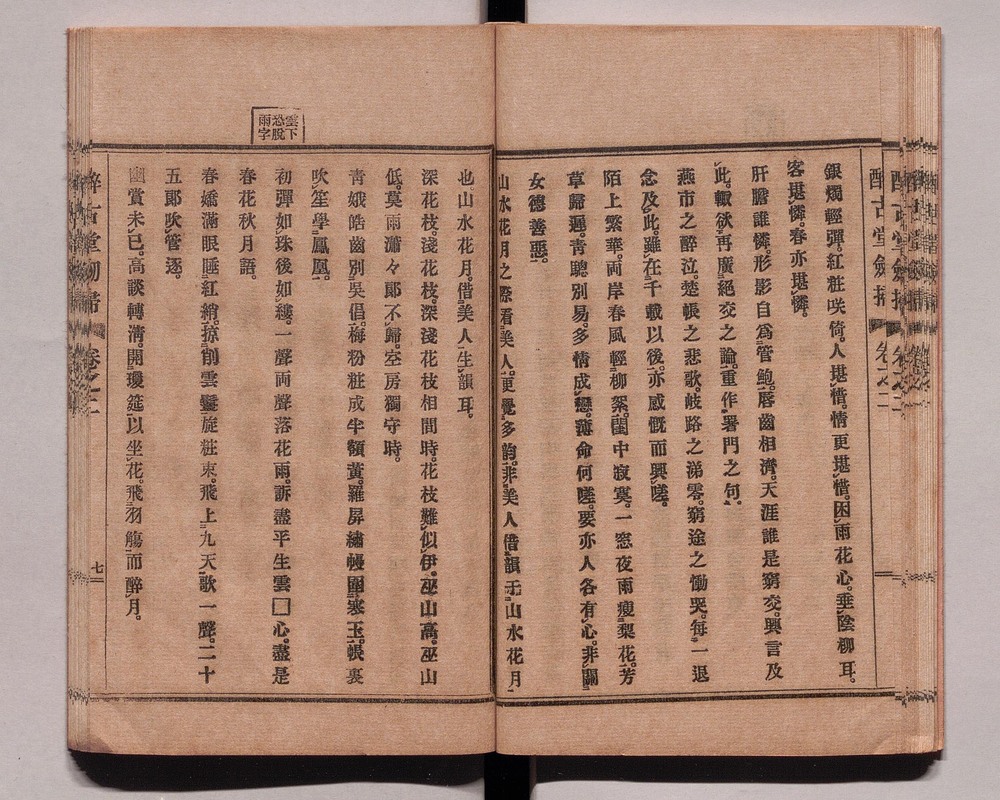 銀燭輕彈。紅粧咲倚。人堪惜。情更堪惜。困雨花心。垂陰柳耳。
客堪憐。春亦堪憐。
肝膽誰憐。形影自爲管鮑。唇齒相濟。天涯誰是窮交。興言及
此。輙欲再廣絕交之論。重作署門之句。
燕市之醉泣。楚帳之悲歌。岐路之涕零。窮途之慟哭。每一退
念及此。雖在千載以後。亦感慨而興嗟。
陌上繁華。両岸春風輕柳絮。閨中寂寞。一窓夜雨瘦梨花。芳
草歸遲。青驄別易。多情成戀。薄命何嗟。要亦人各有心。非關
女德善惡。
山水花月之際。看美人。更覺多韵。非美人借韻于山水花月
也。山水花月。借美人生韻耳。
深花枝。淺花枝。深淺花枝相間時。花枝難似伊。巫山高。巫山
低。莫雨瀟々郞不歸。空房獨守時。
青娥皓齒別吳倡。梅粉粧成半額黃。羅屏繡幔圍寒玉。帳裏
吹笙學鳳凰。
初彈如珠後如縷。一聲両聲落花雨。訴盡平生雲□心。盡是
春花秋月語。
春嬌滿眼睡紅綃。掠削雲鬟旋粧束。飛上九天歌一聲。二十
五郞吹管逐。
幽賞未已。高談轉淸。開瓊筵以坐花。飛羽觴而醉月。
雲下
恐脫
雨字
醉古堂劍掃
卷之二
七